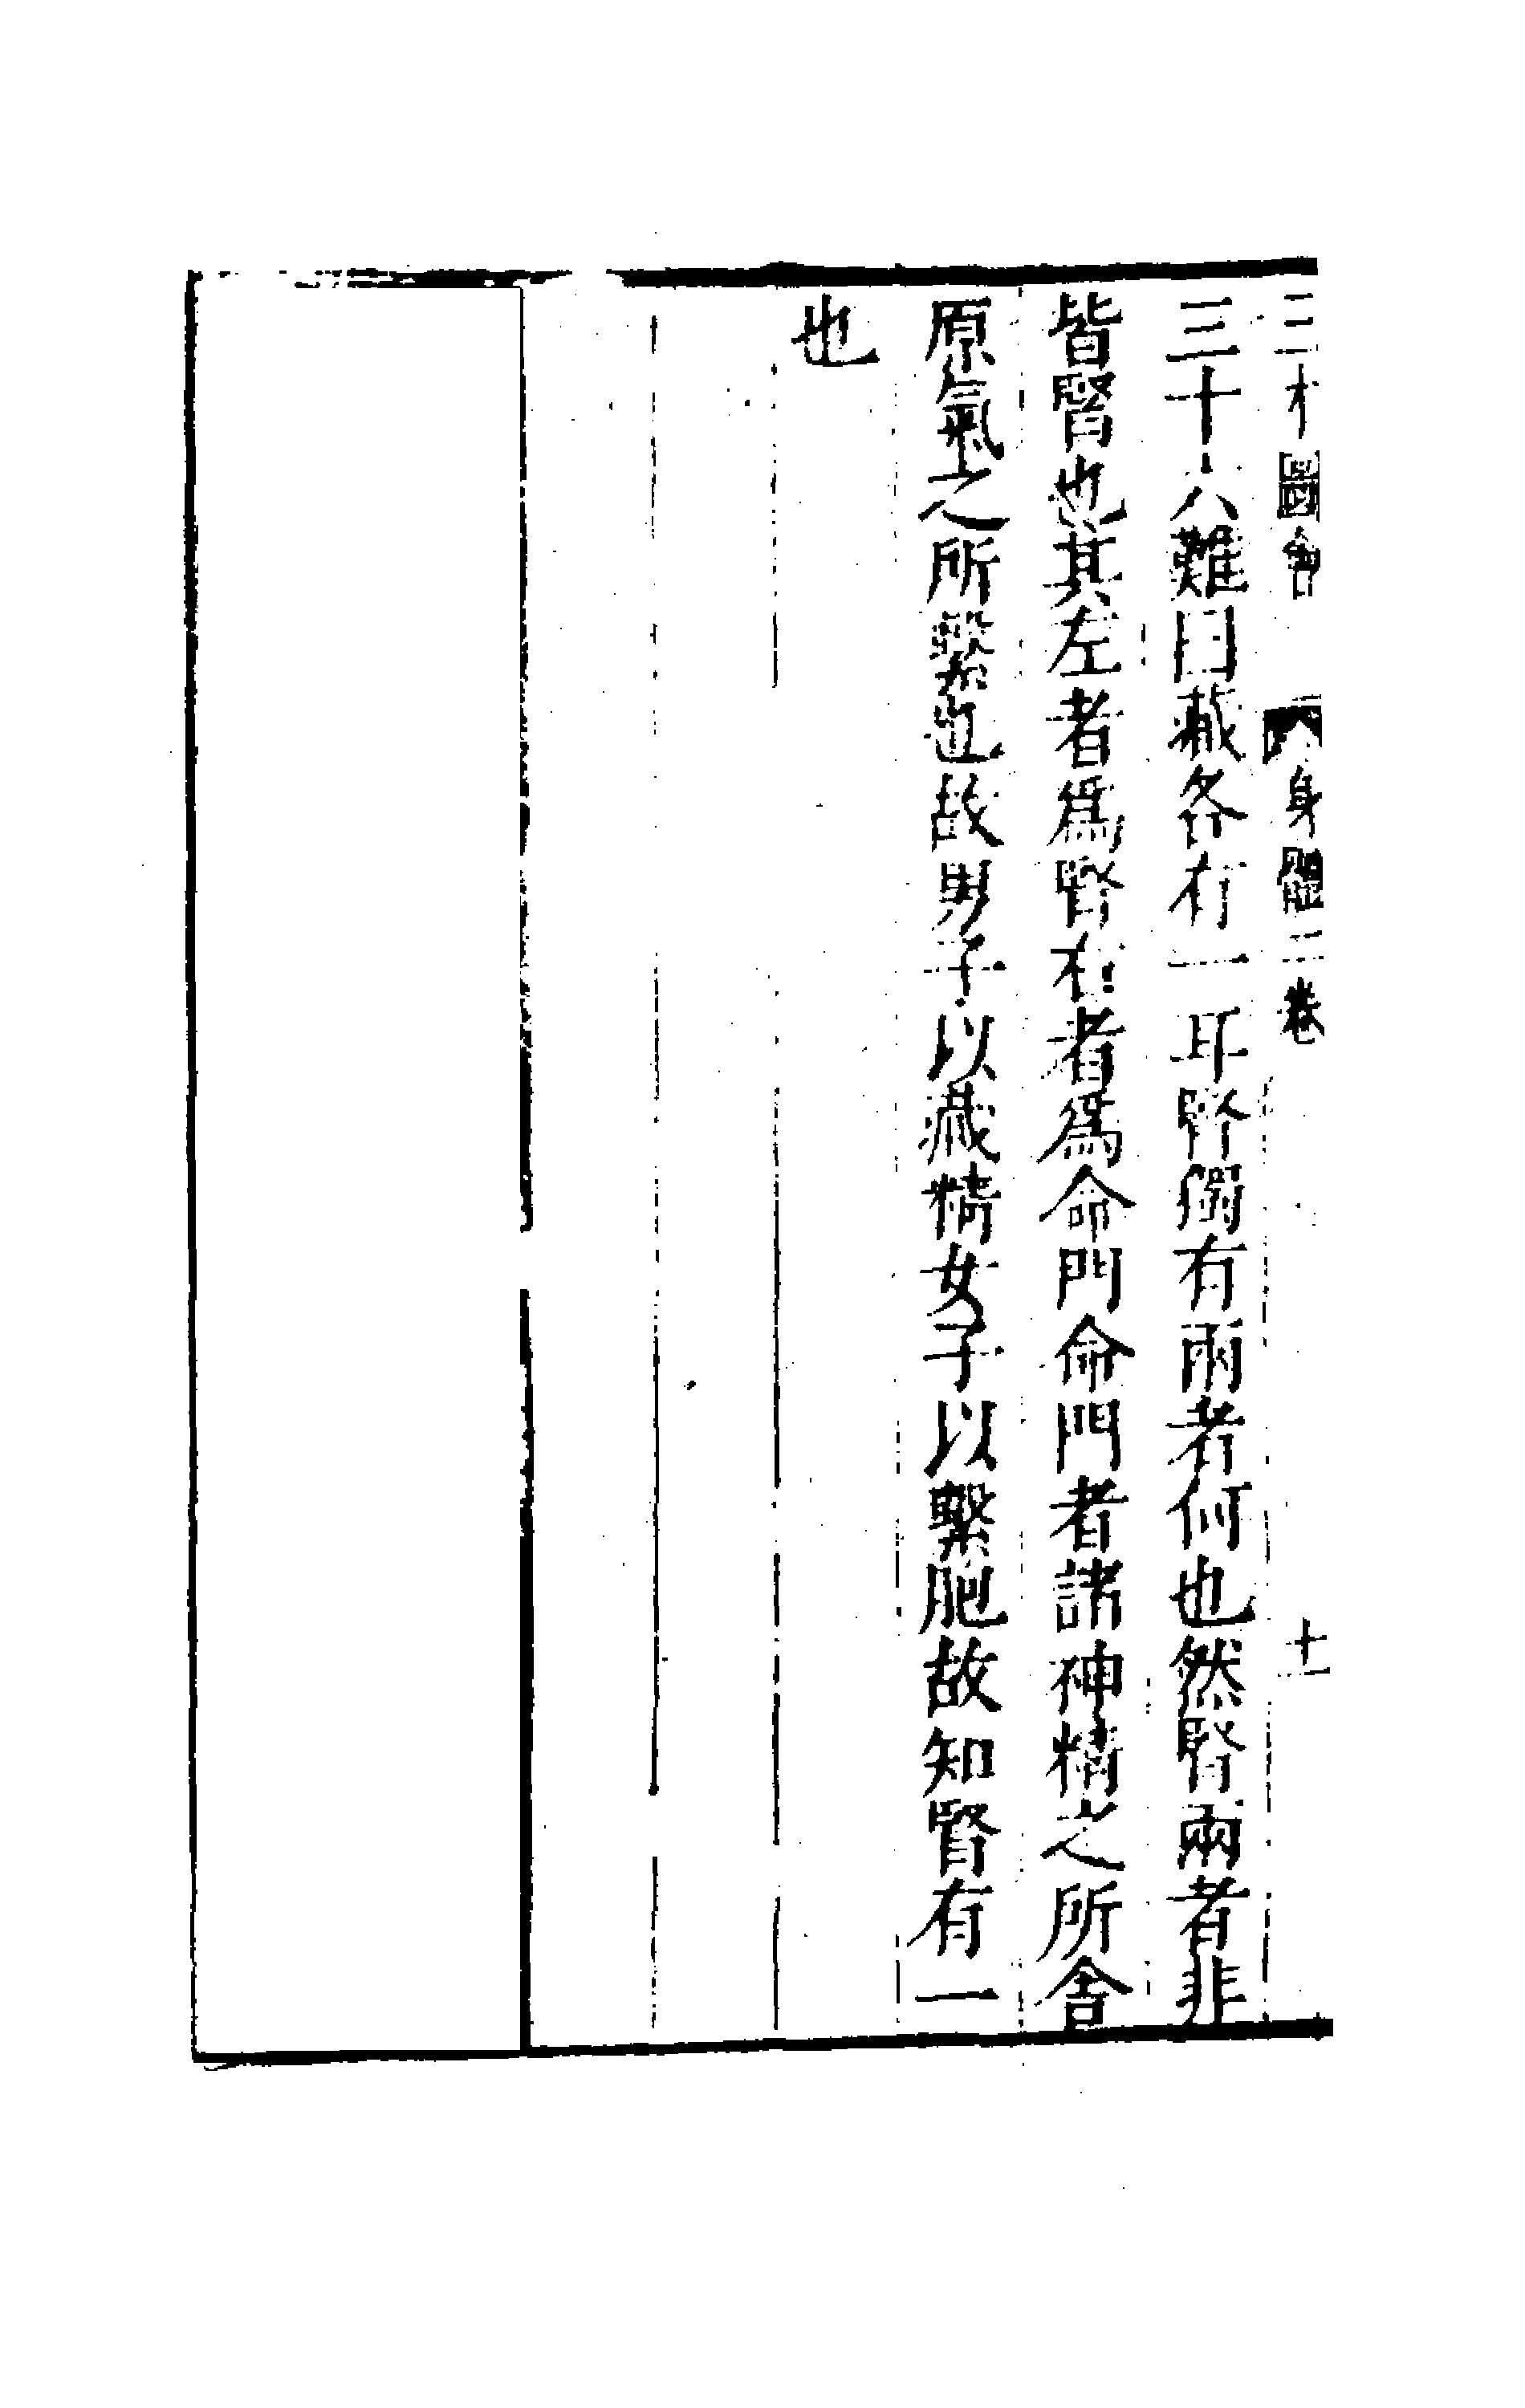 三才圖會 身體二卷 十一
三十六難曰藏各有一耳腎獨有兩者何也然腎兩者非
皆腎也其左者爲腎右者爲命門命門者諸神精之所舍
原氣之所繫也故男子以藏精女子以繫胞故知腎有一
也